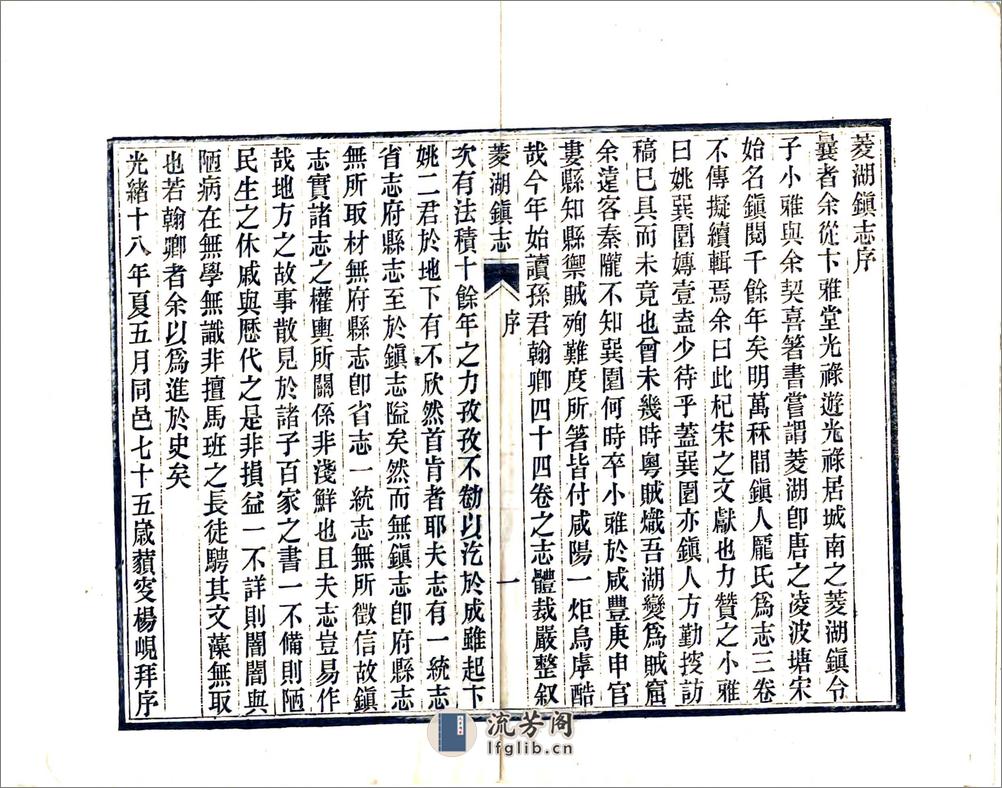 菱湖鎭志序
曩者余從卞雅堂光祿遊光祿居城南之菱湖鎭令
子小雅與余契喜箸書嘗謂菱湖卽唐之凌波塘宋
始名鎭閱千餘年矣明萬秝間鎭人龎氏爲志三卷
不傳擬續輯焉余曰此杞宋之文獻也力贊之小雅
曰姚巽園嫥壹盍少待乎蓋巽園亦鎭人方勤𢮦訪
稿已具而未竟也曾未幾時粵賊熾吾湖變爲賊窟
余遠客秦隴不知巽園何時卒小雅於咸豐庚申官
婁縣知縣禦賊殉難度所箸皆付咸陽一炬烏虖酷
哉今年始讀孫君翰卿四十四卷之志體裁嚴整叙
菱湖鎭志
序
一
次有法積十餘年之力孜孜不勌以汔於成雖起卞
姚二君於地下有不欣然首肯者耶夫志有一統志
省志府縣志至於鎭志隘矣然而無鎭志卽府縣志
無所取材無府縣志卽省志一統志無所徵信故鎭
志實諸志之權輿所關係非淺鮮也且夫志豈易作
哉地方之故事散見於諸子百家之書一不備則陋
民生之休戚與歷代之是非損益一不詳則闇闇與
陋病在無學無識非擅馬班之長徒騁其文藻無取
也若翰卿者余以爲進於史矣
光緒十八年夏五月同邑七十五歲藐叜楊峴拜序
流芳阁
lfglib.cn